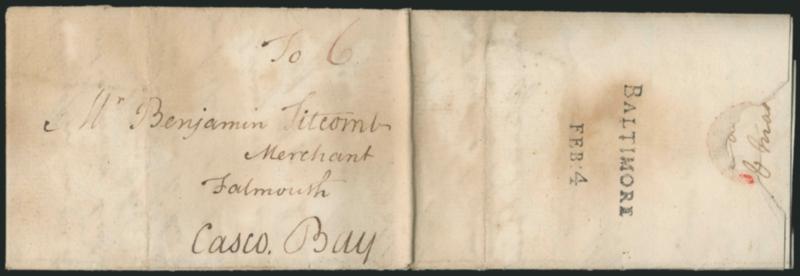 To 6
Mr Benjamin Titcomb
Merchant
Falmouth
Casco. Bay
BALTIMORE
FEB: 4